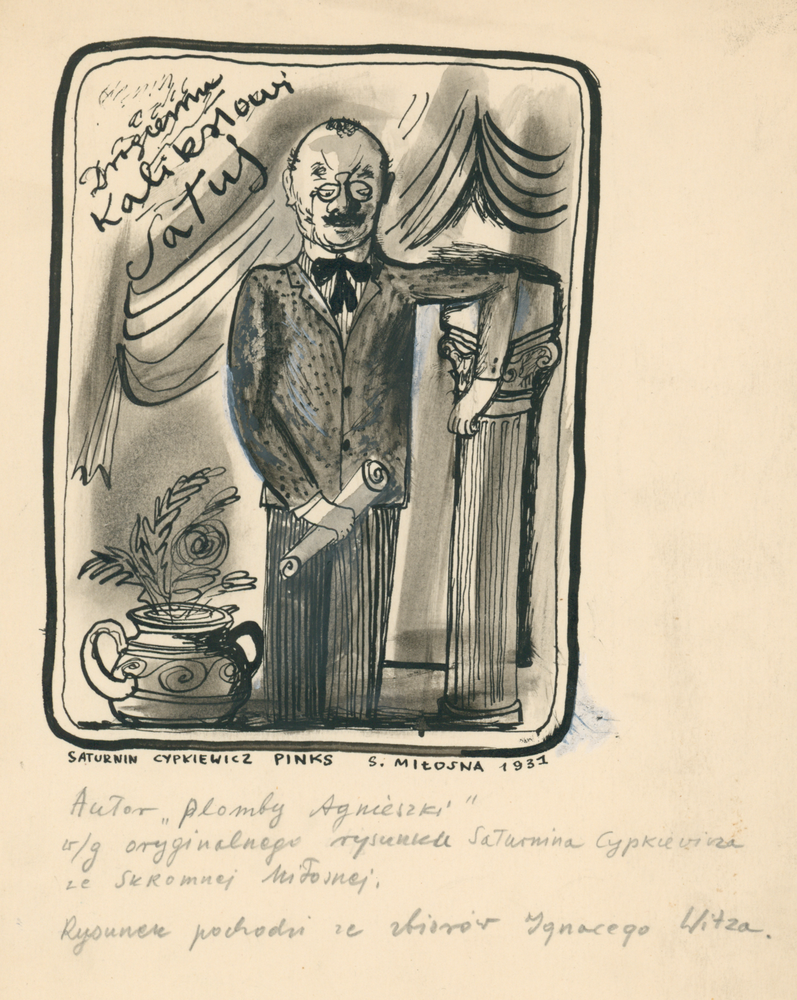 Drogiemu
Kalikstowi
Satuś
SATURNIN CYPKIEWICZ PINKS S. MIŁOSNA 1931
Autor „Plomby Agnieszki”
w/g oryginalnego rysunku Saturnina Cypkiewicza
ze Skromnej Miłosnej.
Rysunek pochodzi ze zbiorów Ignacego Witza.